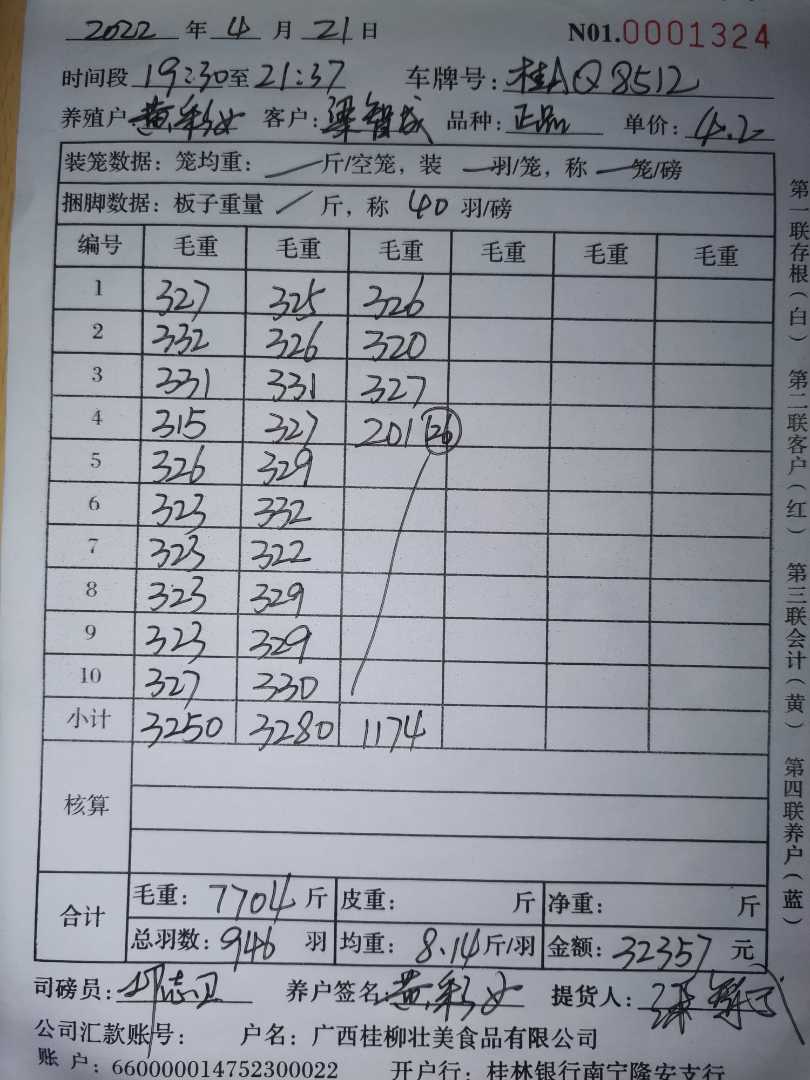 2022 年 4 月 21 日 N01.0001324
时间段 19:30 至 21:37 车牌号: 桂AQ8512
养殖户 黄彩女 客户: 梁智成 品种: 正品 单价: 4.2
装笼数据: 笼均重: — 斤/空笼, 装 — 羽/笼, 称 — 笼/磅
捆脚数据: 板子重量 / 斤, 称 40 羽/磅
编号 毛重 毛重 毛重 毛重 毛重 毛重
1 327 325 326
2 332 326 320
3 331 331 327
4 315 327 201 26
5 326 329
6 323 332
7 323 322
8 323 329
9 323 329
10 327 330
小计 3250 3280 1174
核算
合计 毛重: 7704 斤 皮重: 斤 净重: 斤
总羽数: 946 羽 均重: 8.14 斤/羽 金额: 32357 元
司磅员: 志卫 养户签名 黄彩女 提货人:
公司汇款账号: 户名: 广西桂柳壮美食品有限公司
账 户: 660000014752300022 开户行: 桂林银行南宁隆安支行
第一联存根(白) 第二联客户(红) 第三联会计(黄) 第四联养户(蓝)